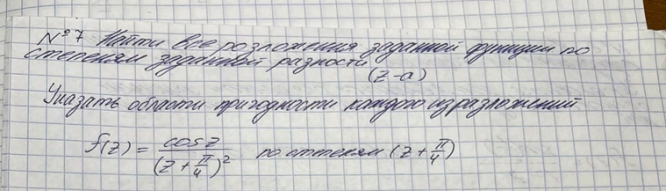 №7 Найти все разложения заданной функции по
степеням заданной разности
(z-a)
Указать области пригодности каждого из разложений
f(z) = cosz / (z + π/4)² по степеням (z + π/4)